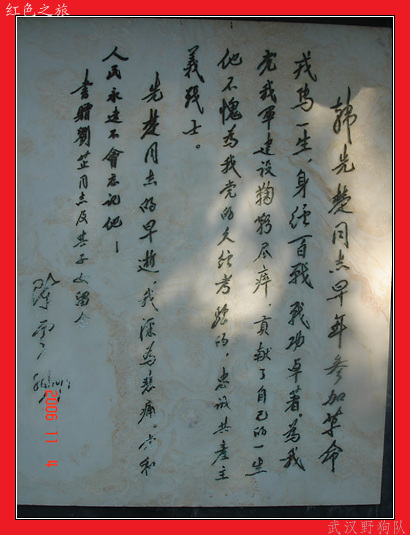 红色之旅
韩先楚同志早年参加革命
戎馬一生，身经百戰，戰功卓著。為我
党我軍建设鞠躬尽瘁，貢献了自己的一生
他不愧為我党的久经考验的，忠诚共產主
義战士。
先楚同志的早逝，我深為悲痛。党和
人民永远不會忘记他！
書贈劉芷同志及其子女留念
2006 11 4
武汉野狗队